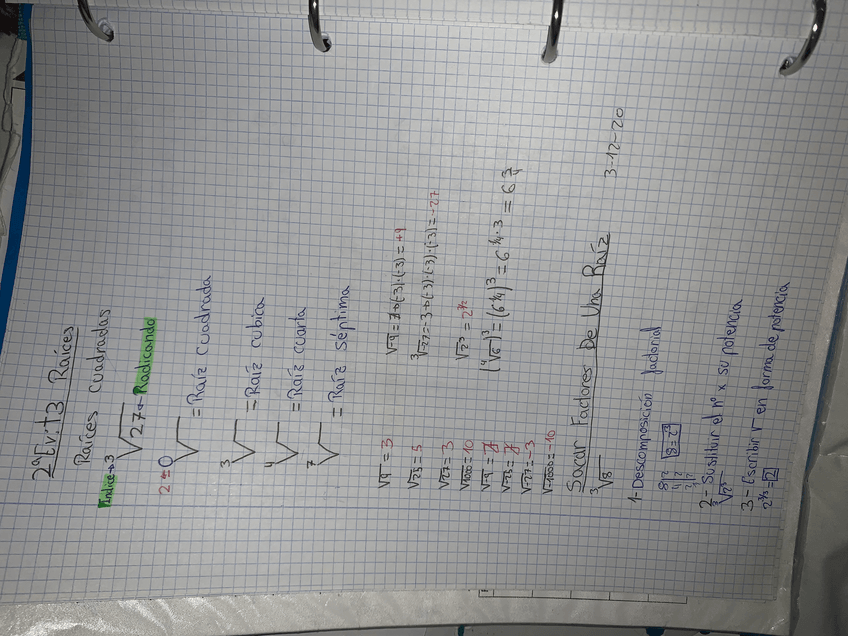 2ªEv:t3 Raíces
Raíces cuadradas
Índice→3√27→Radicando
2=0 √ = Raíz cuadrada
3√ = Raíz cúbica
4√ = Raíz cuarta
7√ = Raíz séptima
√9 = 3
√25 = 5
√27 = 3
√1000 = 10
√-9 =
√-25 =
√-27 = -3
√-1000 = -10
√-9 = (-3)·(-3) = +9
3√-27 = -3→(-3)·(-3)·(-3) = -27
(4√6)³ = (6¼)³ = 6¼·3 = 6¾
Sacar Factores De Una Raíz 3-12-20
3√8
1- Descomposición factorial
8|2
4|2
2|2
1
8=2³
2- Sustituir el nº x su potencia
3√2³
3- Escribir √ en forma de potencia
2³/³=2